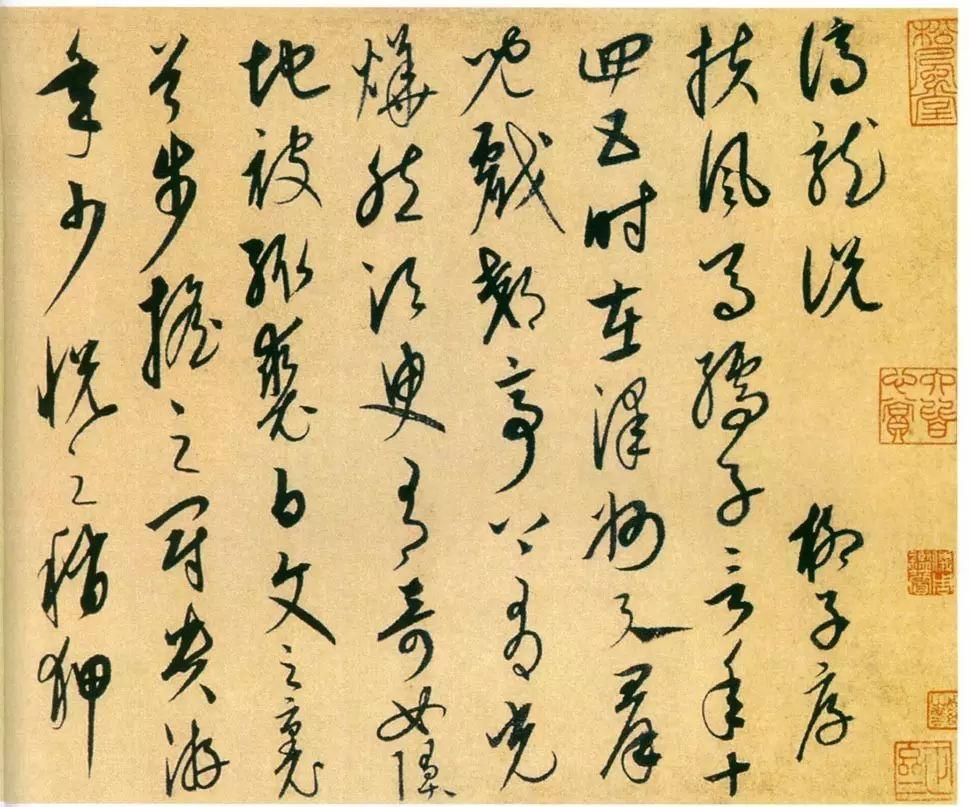 謫龍說 柳子厚
扶風馬孺子言年十
四五時在澤州與羣
兒戲郊亭上有光
燁然須臾有奇女墜
地被緅裘白文之裏
首步搖之冠貴游
年少悅之稍狎